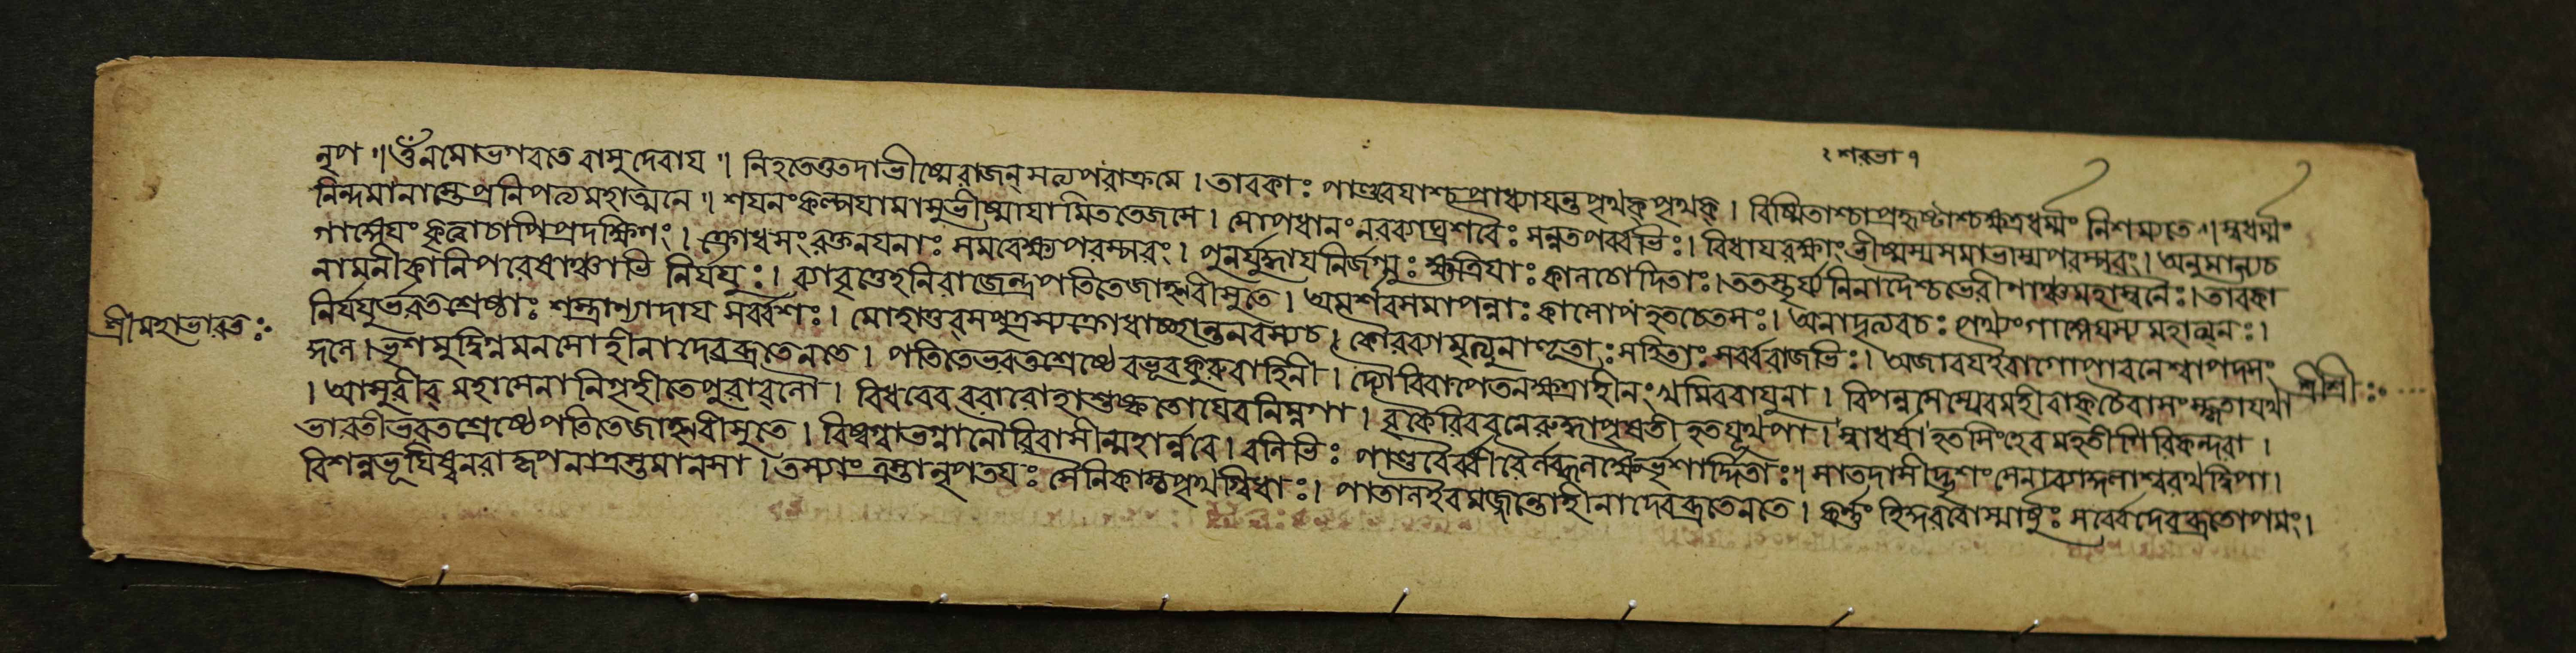 ২ শরভা ৭
নৃপ ॥ ওঁ নমোভগবতে বাসুদেবায ॥ নিহতেতুতদাভীষ্মেরাজন্ সত্যপরাক্রমে । তাবকাঃ পাণ্ডবেযাশ্চপ্রাধ্যাযন্তপৃথক্পৃথক্ । বিস্মিতাশ্চাপ্রহৃষ্টাশ্চক্ষত্রধর্ম্মং নিশম্যতে ॥ স্বধর্ম্মং
নিন্দমানাস্তেপ্রনিপত্যমহাত্মনে ॥ শযনংকল্পযামাসুর্ভীষ্মাযামিততেজসে । সোপধানংনরব্যাঘ্রশরৈঃ সন্নতপর্ব্বভিঃ । বিধাযরক্ষাংভীষ্মস্যসমাভাষ্যপরস্পরং । অনুমান্যচ
গাঙ্গেযংকৃত্বাচাপিপ্রদক্ষিণং । ক্রোধসংরক্তনযনাঃ সমবেক্ষ্যপরস্পরং । পুনর্যুদ্ধাযনির্জগ্মুঃ ক্ষত্রিযাঃ কালচোদিতাঃ । ততস্তূর্য্যনিনাদৈশ্চভেরীণাঞ্চমহাস্বনৈঃ । তাবকা
নামনীকানিপরেষাঞ্চাভি নির্যযুঃ । ব্যাবৃত্তেহনিরাজেন্দ্রপতিতেজাহ্নবীসুতে । অমর্শবসমাপন্নাঃ কালোপহতচেতসঃ । অনাদৃত্যবচঃ পথ্যংগাঙ্গেযস্যমহাত্মনঃ ।
নির্যযুর্ভরতশ্রেষ্ঠাঃ শস্ত্রাণ্যাদায সর্ব্বশঃ । মোহাত্তবসপুত্রস্যক্রোধাচ্ছান্তনবস্যচ । কৌরব্যামৃত্যুনাহূতাঃসহিতাঃ সর্ব্বরাজভিঃ । অজাবযইবাগোপাবনেশ্বাপদসং
শ্রীমহাভারতঃ
ঙ্গলে । ভৃশমুদ্বিগ্নমনসোহীনাদেবব্রতেনতে । পতিতেভরতশ্রেষ্ঠেবভূবকুরুবাহিনী । দ্যৌরিবাপেতনক্ষত্রাহীনংখমিববাযুনা । বিপন্নসস্যেবমহীবাক্চৈবাসংস্কৃতাযথা
শ্রীশ্রীঃ
। আসুরীব্ মহাসেনানিগৃহীতেপুরাবলৌ । বিধবেব বরারোহাশুষ্কতোযেবনিম্নগা । বৃকৈরিববনেরুদ্ধাপৃষতীহতযূথপা । স্বাধর্ষাহতসিংহেবমহতীগিরিকন্দরা ।
ভারতীভরতশ্রেষ্ঠেপতিতেজাহ্নবীসুতে । বিষ্বগ্বাতহতানৌরিবাসীন্মহার্ণবে । বলিভিঃ পাণ্ডবৈর্ব্বীরৈর্লব্ধলক্ষৈর্ভৃশার্দ্দিতাঃ । সাতদাসীদ্ভৃশংসেনাব্যাকুলাশ্বরথদ্বিপা ।
বিশন্নভূযিষ্ঠনরাকৃপনাত্রস্তমানসা । তস্যাংত্রস্তানৃপতযঃ সৈনিকাশ্চপৃথগ্বিধাঃ । পাতালইবমজ্জন্তোহীনাদেবব্রতেনতে । কর্ণ্ণংহিকুরবোস্মার্ষুঃ সর্ব্বেদেবব্রতোপমং ।